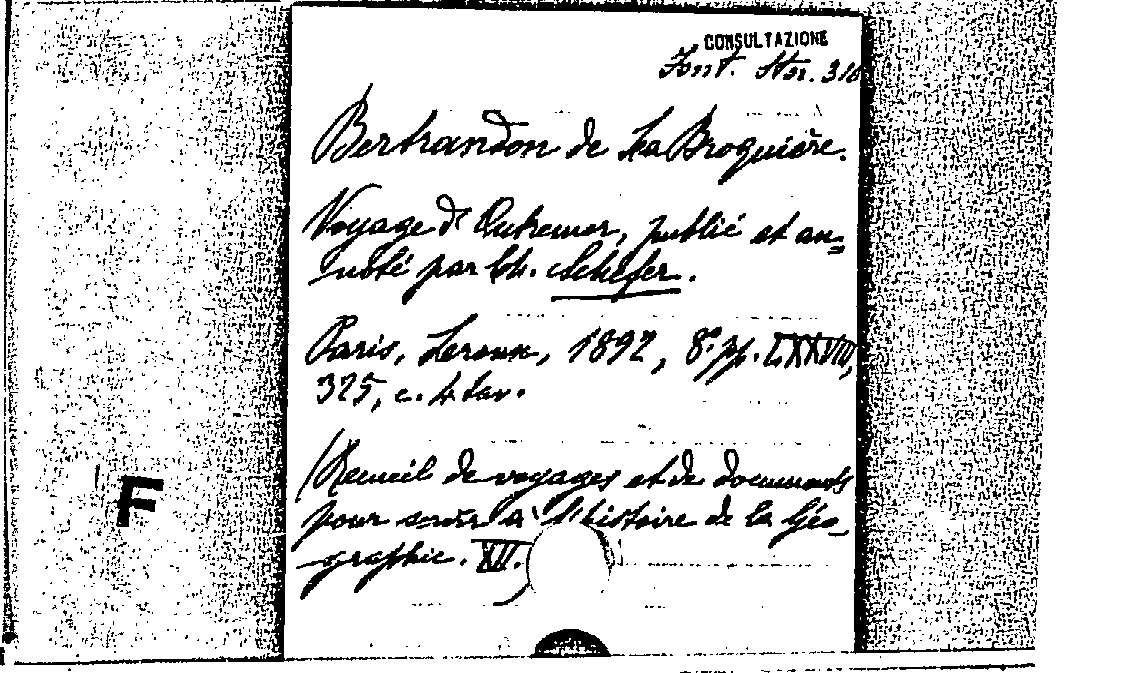 CONSULTAZIONE
Font. Stor. 310
Bertrandon de La Broquière.
Voyage d'Outremer, publié et an=
noté par Ch. Schefer.
Paris, Leroux, 1892, 8° pp. LXXVIII,
325, c. 4 tav.
(Recueil de voyages et de documents
pour servir à l'histoire de la Géo-
graphie. XII.)
F